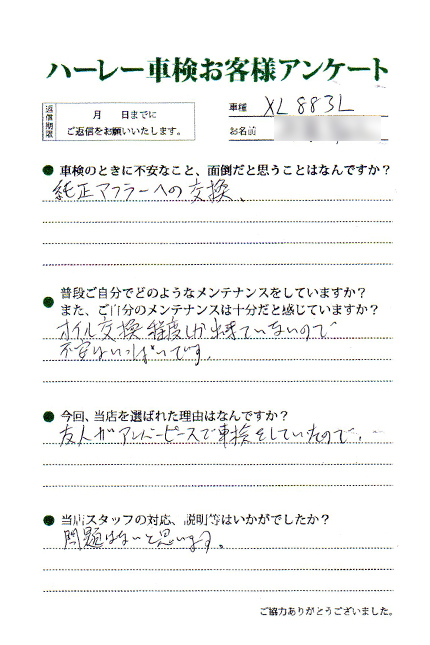 ハーレー車検お客様アンケート
返信期限
月 日までに
ご返信をお願いいたします。
車種 XL883L
お名前
車検のときに不安なこと、面倒だと思うことはなんですか?
純正マフラーへの交換、
普段ご自分でどのようなメンテナンスをしていますか?
また、ご自分のメンテナンスは十分だと感じていますか?
オイル交換程度しか出来ていないので
不安はいっぱいです。
今回、当店を選ばれた理由はなんですか?
友人がアンバーピースで車検をしていたので、
当店スタッフの対応、説明等はいかがでしたか?
問題はないと思います。
ご協力ありがとうございました。